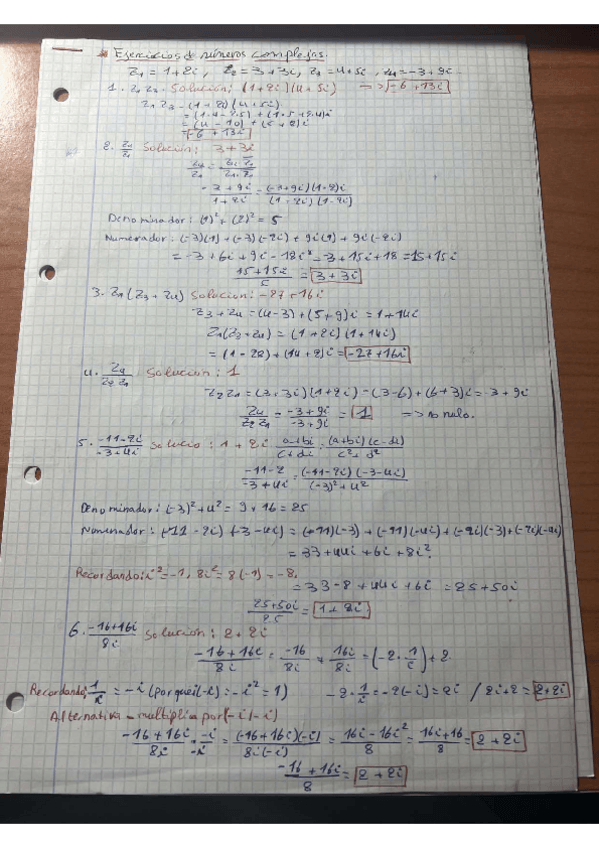 * Ejercicios de números complejos.
Z1 = 1+2i, Z2 = 3+3i, Z3 = 4+5i, Z4 = -3+9i.
1. Z1 Z3. Solución: (1+2i)(4+5i) => -6+13i
Z1 Z3 = (1+2i)(4+5i)
= (1·4-2·5)+(1·5+2·4)i
= (4-10)+(5+8)i
= -6+13i
2. Z4/Z1 Solución: 3+3i
Z4/Z1 = Z4·Z1/Z1·Z1
-3+9i/1+2i = (-3+9i)(1-2)i/(1+2i)(1-2i)
Denominador: (1)²+(2)²=5
Numerador: (-3)(1)+(-3)(-2i)+9i(1)+9i(-2i)
= -3+6i+9i-18i²=-3+15i+18=15+15i
15+15i/5 = 3+3i
3. Z1(Z3+Z4) Solución: -27+16i
Z3+Z4=(4-3)+(5+9)i=1+14i
Z1(Z3+Z4)=(1+2i)(1+14i)
=(1-28)+(14+2)i=-27+16i
4. Z4/Z2 Z1 Solución: 1
Z2Z1=(3+3i)(1+2i)=(3-6)+(6+3)i=-3+9i
Z4/Z2 Z1 = -3+9i/-3+9i = 1 => no nulo.
5. -11-2i/-3+4i Solucio: 1+2i a+bi/c+di = (a+bi)(c-di)/c²+d²
-11-2/-3+4i = (-11-2i)(-3-4i)/(-3)²+4²
Denominador: (-3)²+4²=9+16=25
Numerador: (-11-2i)(-3-4i)=(-11)(-3)+(-11)(-4i)+(-2i)(-3)+(-2i)(-4i)
=33+44i+6i+8i².
Recordando: i²=-1, 8i²=8(-1)=-8.
=33-8+44i+6i=25+50i
25+50i/25 = 1+2i
6. -16+16i/8i Solución: 2+2i
-16+16i/8i = -16/8i + 16i/8i = (-2·1/i)+2
Recordando: 1/i = -i (porque i(-i)=-i²=1) -2·1/i=-2(-i)=2i / 2i+2=2+2i
Alternativa - multiplica por (-i/-i)
-16+16i/8i · -i/-i = (-16+16i)(-i)/8i(-i) = 16i-16i²/8 = 16i+16/8 = 2+2i
-16+16i/8 = 2+2i